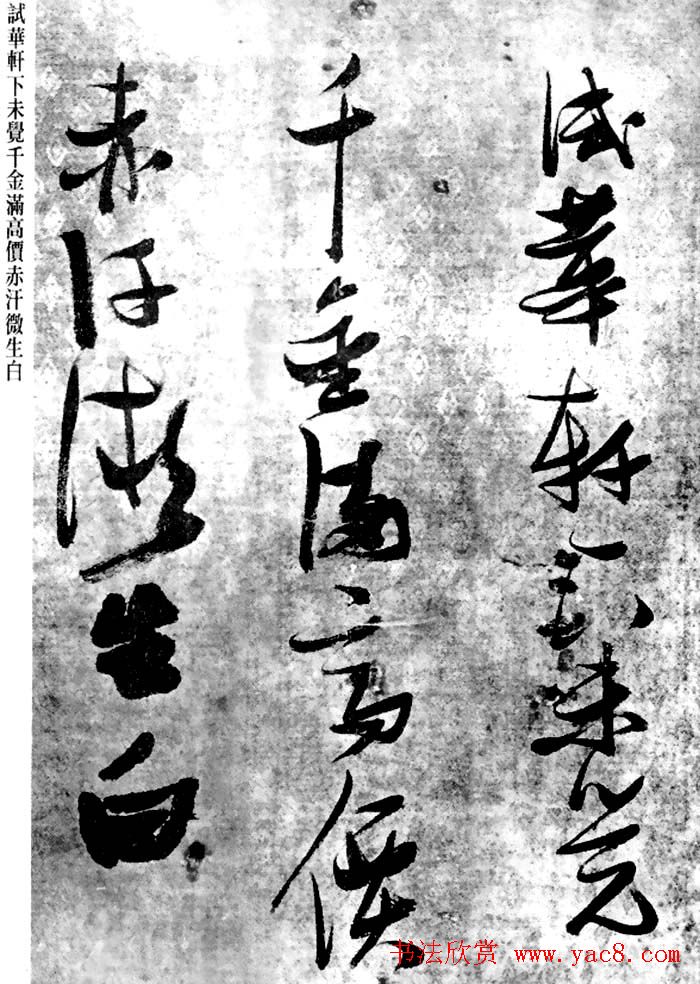 試華軒下未覺
千金滿高價
赤汗微生白
試華軒下未覺千金滿高價赤汗微生白
书法欣赏 www.yac8.com